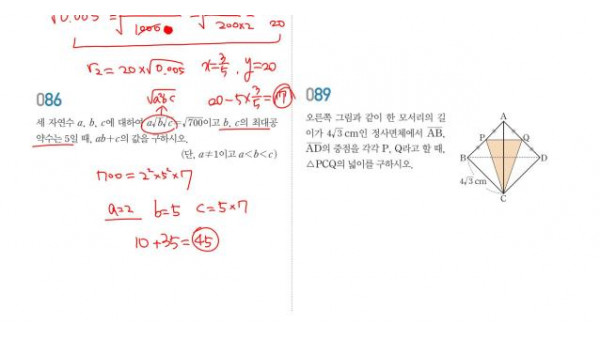 √0.005 = √ 1000 √ 200×2 20
√2 = 20×√0.005 x=3/5, y=20
20-5×3/5=17
086
√a²bc
세 자연수 a, b, c에 대하여 a√b√c=√700이고 b, c의 최대공
약수는 5일 때, ab+c의 값을 구하시오.
(단, a≠1이고 a<b<c)
700 = 2²×5²×7
a=2 b=5 c=5×7
10+35=45
089
오른쪽 그림과 같이 한 모서리의 길
이가 4√3 cm인 정사면체에서 AB,
AD의 중점을 각각 P, Q라고 할 때,
△PCQ의 넓이를 구하시오.
A
P Q
B D
4√3 cm
C